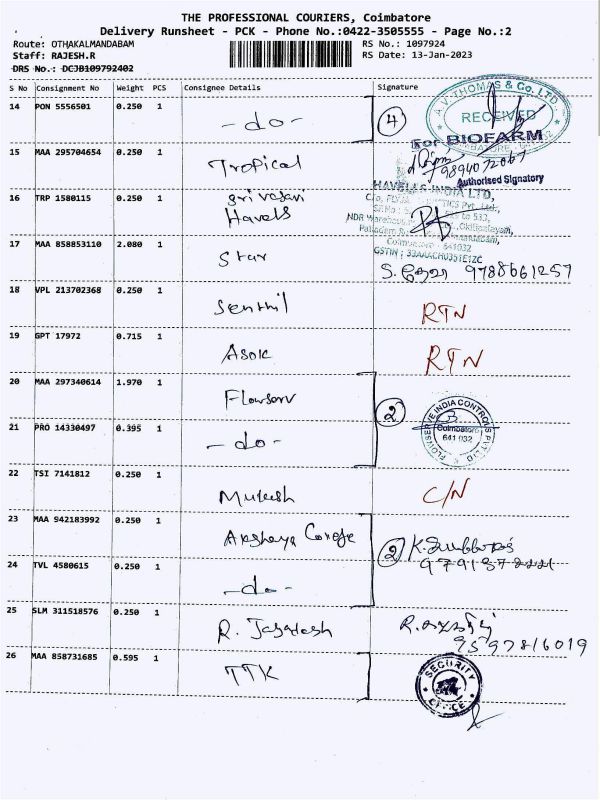 THE PROFESSIONAL COURIERS, Coimbatore
Delivery Runsheet - PCK - Phone No.:0422-3505555 - Page No.:2
Route: OTHAKALMANDABAM
RS No.: 1097924
Staff: RAJESH.R
RS Date: 13-Jan-2023
DRS No.: DCJB109792402
S No Consignment No Weight PCS Consignee Details Signature
14 PON 5556501 0.250 1
-do-
4
A.V. THOMAS & Co. LTD.
RECEIVED
For BIOFARM
15 MAA 295704654 0.250 1
Tropical
9894072067
Authorised Signatory
16 TRP 1580115 0.250 1
Srivasavi
Havells
HAVELLS INDIA LTD,
NDR Warehouse
Coimbatore - 641032
GSTIN : 33AAACH0351E1ZC
17 MAA 858853110 2.080 1
Star
9788661257
18 VPL 213702368 0.250 1
Senthil
RTN
19 GPT 17972 0.715 1
Asok
RTN
20 MAA 297340614 1.970 1
Flowserv
2
FLOWSERVE INDIA CONTROLS PVT LTD
Coimbatore
641 032
21 PRO 14330497 0.395 1
-do-
22 TSI 7141812 0.250 1
Mukesh
C/N
23 MAA 942183992 0.250 1
Akshaya
2
24 TVL 4580615 0.250 1
-do-
25 SLM 311518576 0.250 1
R. Jagadesh
9597816019
26 MAA 858731685 0.595 1
TTK
SECURITY
OFFICE